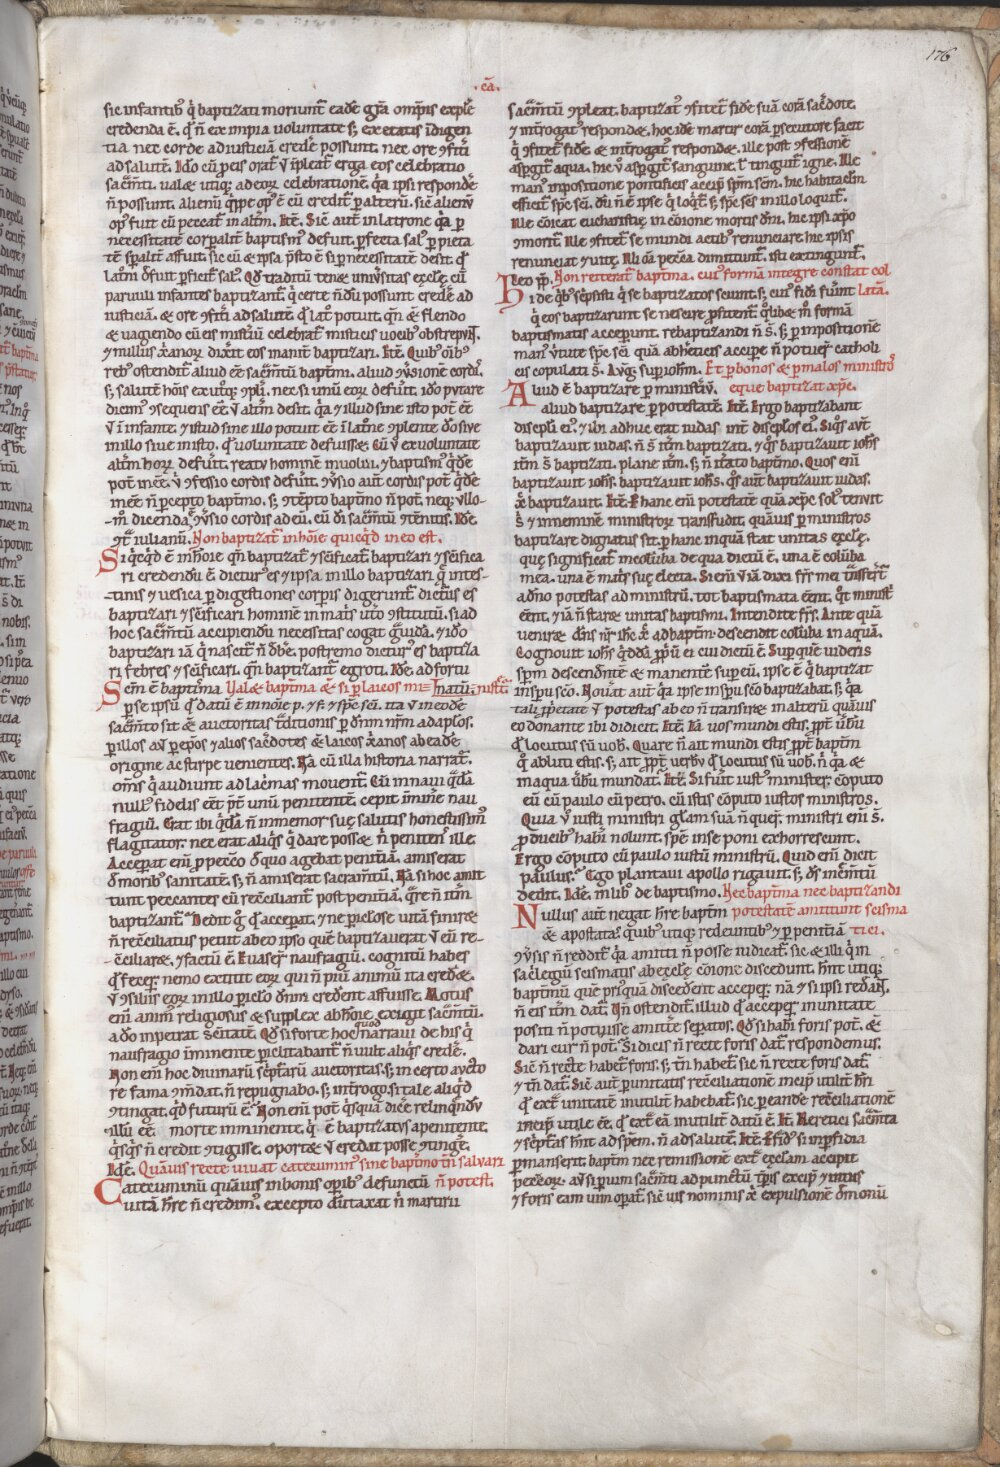 176
.cā.
sic infantibꝰ q̇ baptizati moriunt᷑ eadē grā om̄ipis expleͬ
credenda ē. q̇ n̄ ex impia voluntate s; ex etatis īdigen
tia nec corde ad iusticiā credeͬ possunt. nec ore ꝯfiti
ad salutē. Iđo cū p eis orat᷑ ⁊ īpleat᷑ erga eos celebratio
sac̄mti. ualet utiq; ad eorꝫ celebrationē. q̇a ipsi respondeͬ
n̄ possunt. alienū q̇ppe opꝰ ē cū credit᷑ p alterū. sic alienū
opꝰ fuit cū peccat᷑ in alt̄m. Itē. Sic aut̄ in latrone q̇a p
necessitatē corpalit᷑ baptismꝰ defuit. pfecta salꝰ p pieta
tē sp̄alit᷑ affuit. sic cū & ipsa p̄sto ē si p necessitatē desit. qđ
latͦni defuit pficit᷑ salꝰ. Qđ traditū tenet uniùsitas ecc̄lę. cū
paruuli infantes baptizant᷑. q̇ certe n̄dū possunt credeͬ ad
iusticiā. & ore ꝯfiti ad salutē qđ latͦ potuit. qn̄ & flendo
& uagiendo cū eis mist̄iū celebrat᷑ misticis uocibꝰ obstrepūt.
⁊ nullus xanorꝫ dixit eos inanit᷑ baptizari. Itē. Quibꝰ oībꝰ
rebꝰ ostendit᷑ aliud eē sac̄mtū baptmi. aliud ꝯùsionē cordis.
s; salutē hōis ex utiq; ꝯpleͬi. nec si unū eorꝫ defuit. iđo putare
diemꝰ ꝯsequens eē. ꝟ alt̄m desit. q̇a ⁊ illud sine isto pot᷑ eē
ꝟ ī infante. ⁊ istud sine illo potuit eē ī latͦne ꝯplente đo siue
in illo siue in isto. qđ uoluntate defuisset. Cū ꝟ ex uoluntate
alt̄m horꝫ defuit. reatu hominē inuolui. ⁊ baptismꝰ q̇đē
pot᷑ inēē. ꝟ ꝯfessio cordis defuit. ꝯùsio aut̄ cordis pot᷑ q̇đē
inēē n̄ pcepto baptmo. s; ꝯtēpto baptmo n̄ pot᷑. neq; ullo-
-mͦ dicenda ꝯùsio cordis ad eū. cū đi sac̄mtū ꝯtēnit᷑. Idē
ꝯt̄ iulianū. Non baptizat᷑ in hōie quicq̇d in eo est.
Siq̇cq̇d ē in hōie qn̄ baptizat᷑ ⁊ sc̄ificat᷑. baptizari ⁊ sc̄ifica
ri credendū ē. dicturꝰ es ⁊ ipsa in illo baptizari q̇ intes-
-tinis ⁊ uesica p digestiones corpis digerunt᷑. dictūs es
baptizari ⁊ sc̄ificari hominē in mat̄s uťo ꝯstitutū. si ad
hoc sac̄mtū accipiendū necessitas cogat g̈uida. ⁊ iđo
baptizari iā q̇ nascit᷑ n̄ đbē. postremo dicturꝰ es baptiza
ri febres ⁊ sc̄ificari. qn̄ baptizant᷑ egroti. Idē ad fortu
Sc̄m ē baptisma Valet baptma & si p laicos mi= natū. nist̃t᷑
p se ipsū qđ datū ē in noīe p. ⁊ f. ⁊ sp̄c sc̄i. ita ꝟ in eode
sac̄mto sit & auctoritas t̃ditionis p dn̄m nr̄m ad ap̄los.
p illos aũ p ep̄os ⁊ alios sacđotes & laicos xanos ab eadē
origine ac stirpe uenientes. Nā cū illa historia narrat᷑.
om̄s q̇ audiunt ad lac̄mas mouent᷑. Cū in naui q̇đā
nullꝰ fidelis eēt pt̄ unū penitentē. cepit īmineͬ nau
fragiū. Erat ibi q̇đā n̄ inmemor sue salutis honestissimꝰ
flagitator. nec erat aliq̇s q̇ dare posset & n̄ penitenͬs ille.
Acceperat enī p pccō đ quo agebat penitiā. amiserat
đ moribꝰ sanitatē. s; n̄ amiserat sacramtū. Nā si hoc amit
tunt peccantes cū reciliant᷑ post penitiā. q̄re n̄ it̄m
baptizant᷑. Dedit gͦ qđ accepat. ⁊ ne piclose uitā finiret
n̄ reciliatus petiit ab eo ipso quē baptizauerat ꝟ eū re-
-ciliaret. ⁊ factū ē. Euaser̄ naufragiū. cognitū habes
qđ fecer. nemo extitit eorꝫ qui n̄ piū animū ita credet.
ꝟ ꝯsiliis eorꝫ in illo piclo đn̄m credent affuisse. Motus
enī animͣ religiosus & supplex ab hōie exigit sac̄mtū.
a đo impetrat sc̄itatē. Qđ si forte hoc quod narraui de his q̇
naufragio īminente piclitabant᷑ n̄ uult aliq̇s credeͬ.
Non enī hoc diuinarū sc̄ptarū auctoritas. s; in certo aucto
re fama ꝯm̄dat. n̄ repugnabo. s; int̄rogo. si tale aliq̇d
ꝯtingat. qđ futurū ē? Non enī pot᷑ q̇sq̇ dic̄e relinq̄ndū
illū eē morte imminente. q̇ ē baptizatus a penitent.
q̇sq̇s n̄ credit ꝯtigisse. oportet ꝟ credat posse ꝯtingeͬ.
Idē. Quāuis recte uiuat catecuminꝰ sine baptmo tn̄ saluari
Catecuminū quāuis in bonis opibꝰ defunctū n̄ potest.
uitā hr̄e n̄ credimꝰ. excepto dūtaxat n̄ martirii
sac̄mtū ꝯpleat. baptizatꝰ ꝯfitet᷑ fidē suā corā sacđote.
⁊ int̄rogatꝰ respondet. hoc idē martir corā psecutore facit
q̇ ꝯfitet᷑ fidē & int̄rogatꝰ respondet. ille post ꝯfessionē
aspgit᷑ aqua. hic ꝟ aspgit᷑ sanguine. l᷑ tinguit᷑ igne. Ille
manꝰ inpositione pontificis accipͭ spm̄ scm̄. hic habitaclm̄
efficit᷑ spc̄ sc̄i. dū n̄ ē ipse q̇ loq̇t᷑ s; spc̄ sc̄s in illo loquit᷑.
Ille cōicat eucharistię in cōione mortis dn̄i. hic ipsi xp̄o
ꝯmorit᷑. Ille ꝯfitet᷑ se mundi actibꝰ renunciare hic ipsi
renunciat ⁊ uitę. Illi oīa pccā dimittunt᷑. isti extingunt᷑.
Leo pp. Non reiterat᷑ baptma. cuiꝰ formā integre constat col
Hi de q̇bꝰ sc̄psisti q̇ se baptizatos sciunt. s; cuiꝰ fidei fuīnt latā.
q̇ eos baptizarunt se nescire pfitent᷑. q̇libet m̊ formā
baptismatis acceperunt. rebaptizandi n̄ st̄. s; p impositionē
manꝰ ꝟtute spc̄ sc̄i quā ab heͬticis accipe n̄ potuer catholi
cis copulati st̄. Avg. sup ioh̄m. Et p bonos & p malos ministros
Aliud ē baptizare p ministrū. eque baptizat xp̄c.
aliud baptizare p potestatē. Itē. Ergo baptizabant
discipli ei. ⁊ ibi adhuc erat iudas int̄ disciplos ei. Siq̇s aut̄
baptizauit iudas. n̄ st̄ it̄m baptizati. ⁊ q̇s baptizauit ioh̄s
it̄m st̄ baptizati. plane it̄m. s; n̄ it̄ato baptmo. Quos enī
baptizauit ioh̄s. baptizauit ioh̄s. q̇s aut̄ baptizauit iudas.
xc̄ baptizauit. Itē. P hanc enī potestatē quā xp̄c solꝰ tenuit
s; ⁊ in neminē ministrorꝫ transfudit. quāuis p ministros
baptizare dignatus sit. p hanc inquā stat unitas ecc̄lę.
quę significat᷑ in coluba de qua dictū ē. una ē coluba
mea. una ē mat̄s sue electa. Si enī ꝟ iā dixi fr̄s mei t̄nsfert᷑
a dn̄o potestas ad ministrū. tot baptismata eent. q̇t ministͥ
eent. ⁊ iā n̄ staret unitas baptismi. Intendite fr̄s. Ante quā
veniret dn̄s nr̄ ih̄c xc̄ ad baptm̄. descendit coluba in aquā.
Cognouit ioh̄s q̇đđā ppū ei cui dictū ē. Sup quē uideris
spm̄ descendēte & manente sup eū. ipse ē q̇ baptizat
in spu sc̄o. Nouat aut̄ q̇a ipse in spu sc̄o baptizabat. s; q̇a
tali ppetate ꝟ potestas ab eo n̄ transiret in alterū quāuis
eo donante ibi didicit. Itē. Iā uos mundi estis. ppt̄ ùbū
qđ locutus sū uob̄. Quare n̄ ait mundi estis ppt̄ baptm̄
q̇ abluti estis. s; ait ppt̄ verbū qđ locutus sū uob̄. n̄ q̇a &
in aqua ùbū mundat᷑. Itē. Si fuit iustꝰ minister. cōputo
eū cū paulo cū petro. cū istis cōputo iustos ministros.
Quia ꝟ iusti ministri glam suā n̄ quer. ministri enī st̄.
p đucibꝰ habi nolunt. spē in se poni exhorrescunt.
Ergo cōputo cū paulo iustū ministrū. Quid enī dicit
paulus? Ego plantaui apollo rigauit. s; đs inc̄mtū
dedit. Idē. in libꝰ de baptismo. Nec baptma nec baptizandi
Nullus aut̄ negat hr̄e baptm̄ potestatē amittunt scisma
& apostatas quibꝰ utiq; redeuntibꝰ ⁊ p penitā tici.
ꝯùsis n̄ reddit᷑. q̇a amitti n̄ posse iudicat᷑. sic & illi q̇ in
sac̄legiū scismatis ab ecc̄lę cōione discedunt. hn̄t utiq;
baptmū quē priꝰ quā discedent accepeͬ. nā ⁊ si ipsi redeāt.
n̄ eis it̄m dat᷑. Qn̄ ostendit᷑. illud qđ accepeͬ. in unitate
positi n̄ potuisse amitteͬ sepatos. Qđ si habi foris pot᷑. &
dari cur n̄ pot᷑. Si dicis n̄ recte foris dat᷑. respondemus.
Sic n̄ recte habet᷑ foris. s; tn̄ habet᷑. sic n̄ recte foris dat᷑.
⁊ tn̄ dat᷑. Sic aut̄ p unitatis reciliationē incipͭ utilit᷑ hr̄i
qđ ext̄ unitatē inutilit᷑ habebat᷑. sic p eandē reciliationē
incipͭ utile eē. qđ ext̄ eā inutilit᷑ datū ē. It̄. Heretici sac̄mta
⁊ sc̄ptas hn̄t ad spem̄. n̄ ad salutē. Itē. Est fidꝰ si in pfidia
pmanserit. baptm̄ nec remissionē ext̄ ecc̄lam accipit
pccōrꝫ. aut si puim sac̄mti ad punctū tp̄is excipͭ ⁊ intus
⁊ foris eam uim opat᷑. sic uis nominis xc̄ expulsionē đmonū